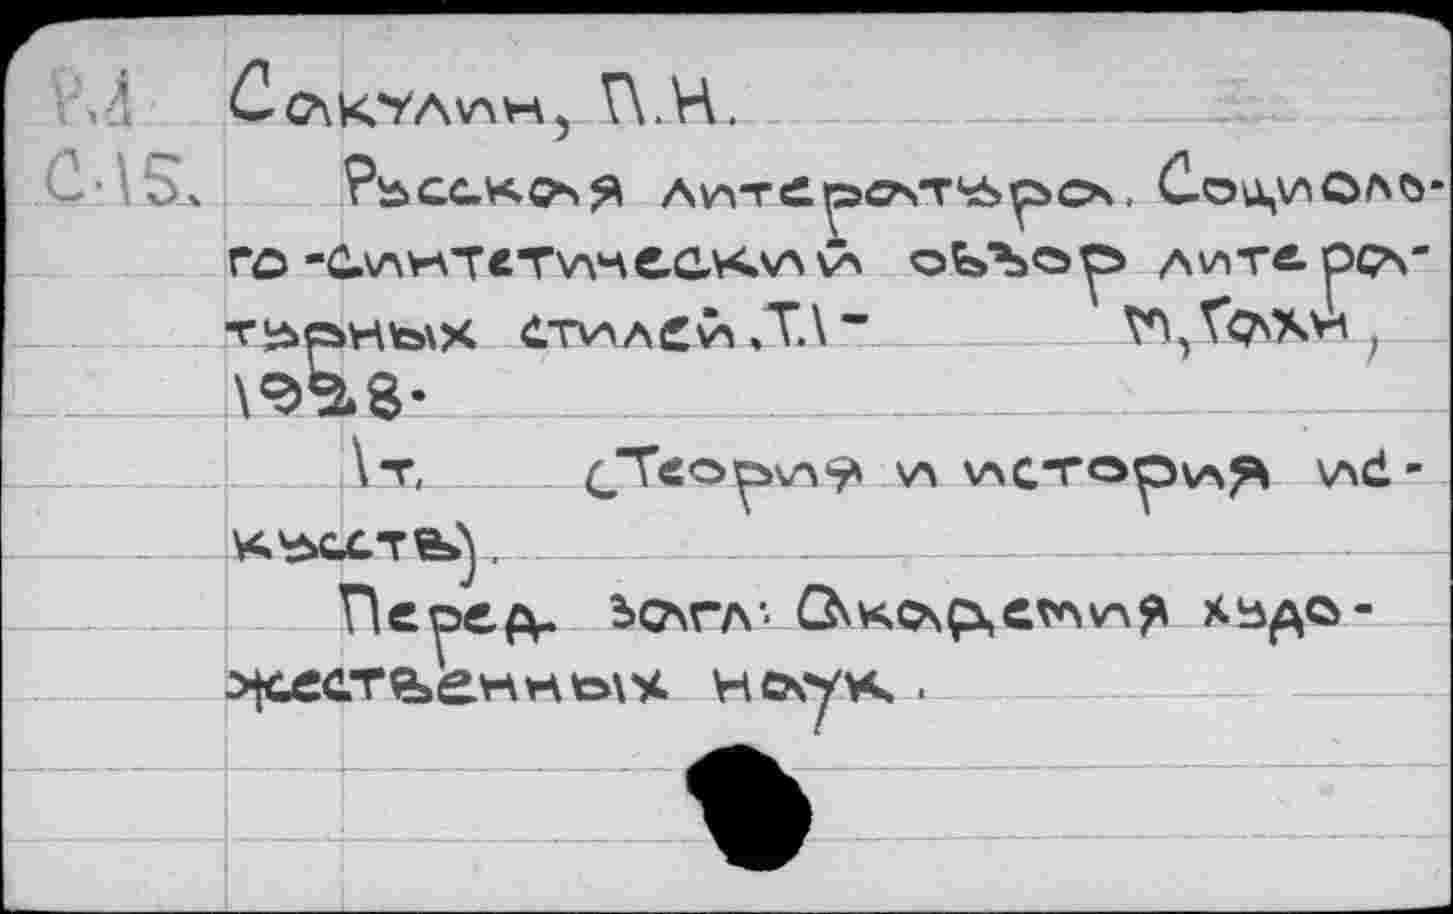 Р.1 Сакулин, П.Н.
С-15. Русская литература. Социоло-
го-синтетический обзор литера-
турных стилей. Т.1- М, Гахн,
1928.
1т, (Теория и история ис-
кусств).
Перед. загл: Академия худо-
жественных наук.